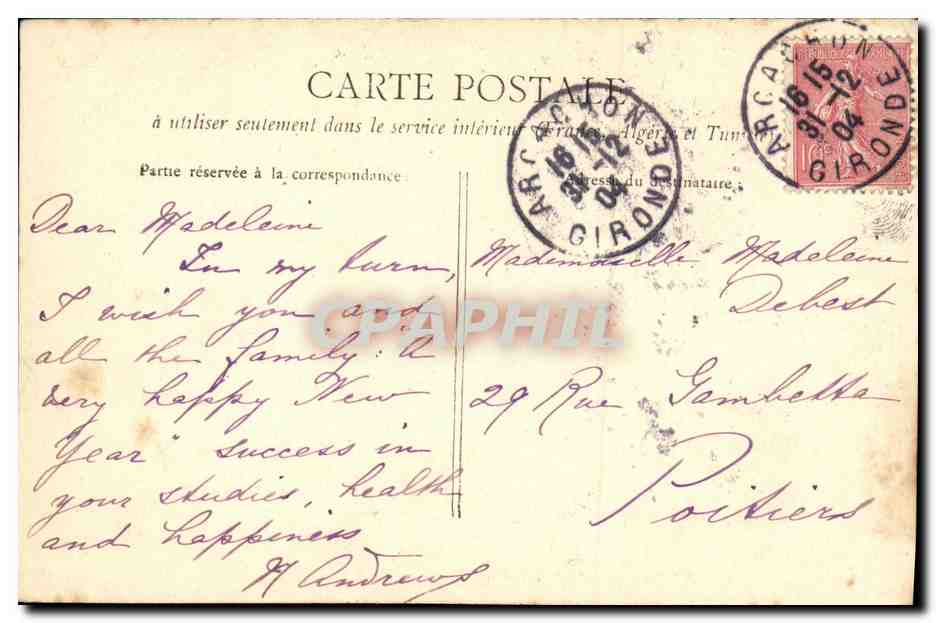 CARTE POSTALE
à utiliser seulement dans le service intérieur (France, Algérie et Tunisie
Partie réservée à la correspondance.
Adresse du destinataire.
ARCACHON
16 15
31 -12
04
GIRONDE
ARCACHON
16 15
31 -12
04
GIRONDE
Dear Madeleine
In my turn,
I wish you and
all the family: A
very happy New
Year" success in
your studies, health
and happiness
M Andrews
Mademoiselle Madeleine
Debest
29 Rue Gambetta
Poitiers
CPAPHIL